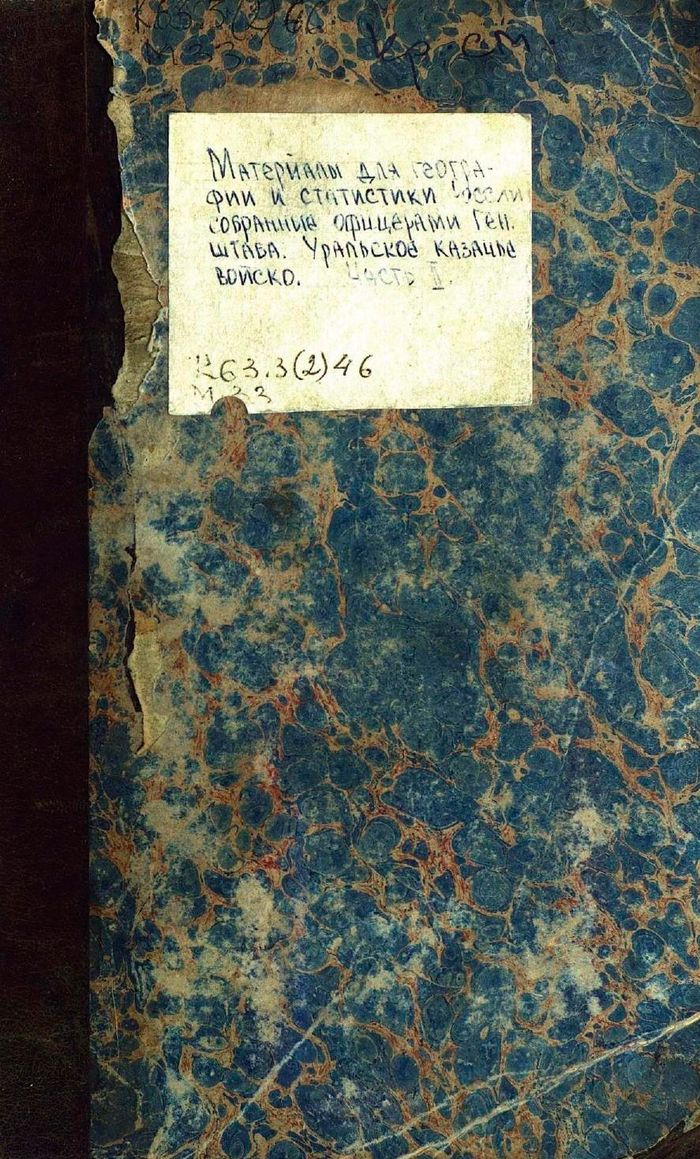 К63.3(2)46
М33
кр. см.
Материалы для геогра-
фии и статистики России
собранные офицерами Ген.
штаба. Уральское казачье
войско. Часть II.
К63.3(2)46
М 33